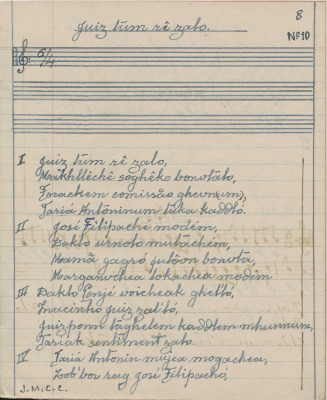 Juiz tum rê zalo.
8
Nº10
6/4
I Juiz tum rê zalo,
Makhllêchê soghêko bonotalo,
Zorachem comissão ghevnum,
Tariá Antôninum tuka kaddló.
II José Filipachê modêm,
Dakto urnoto mutachêm,
Mamã gagrô jubôon bonvtá,
Morganvchea lokachea modêm
III Dakto Ponjê voicheak ghetló,
Inacinho juiz zaltó,
Juizponn tághelem kaddlem mhunnum,
Tariak sentiment zalo.
IV Tariá Antonin mujea mogachea,
rag José Filipachó,
J.M.C.C.